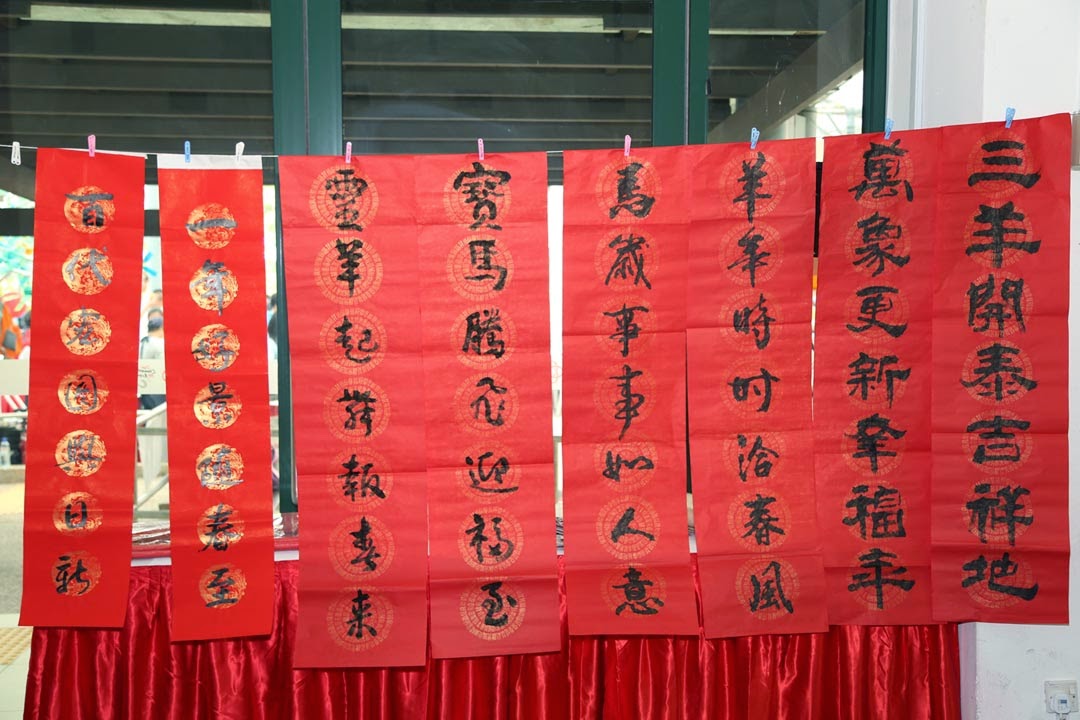 三羊開泰吉祥地
萬象更新幸福年
羊年時时洽春風
馬歲事事如人意
寶馬騰飛迎福至
靈羊起舞報春来
一年好景春至
百春日新